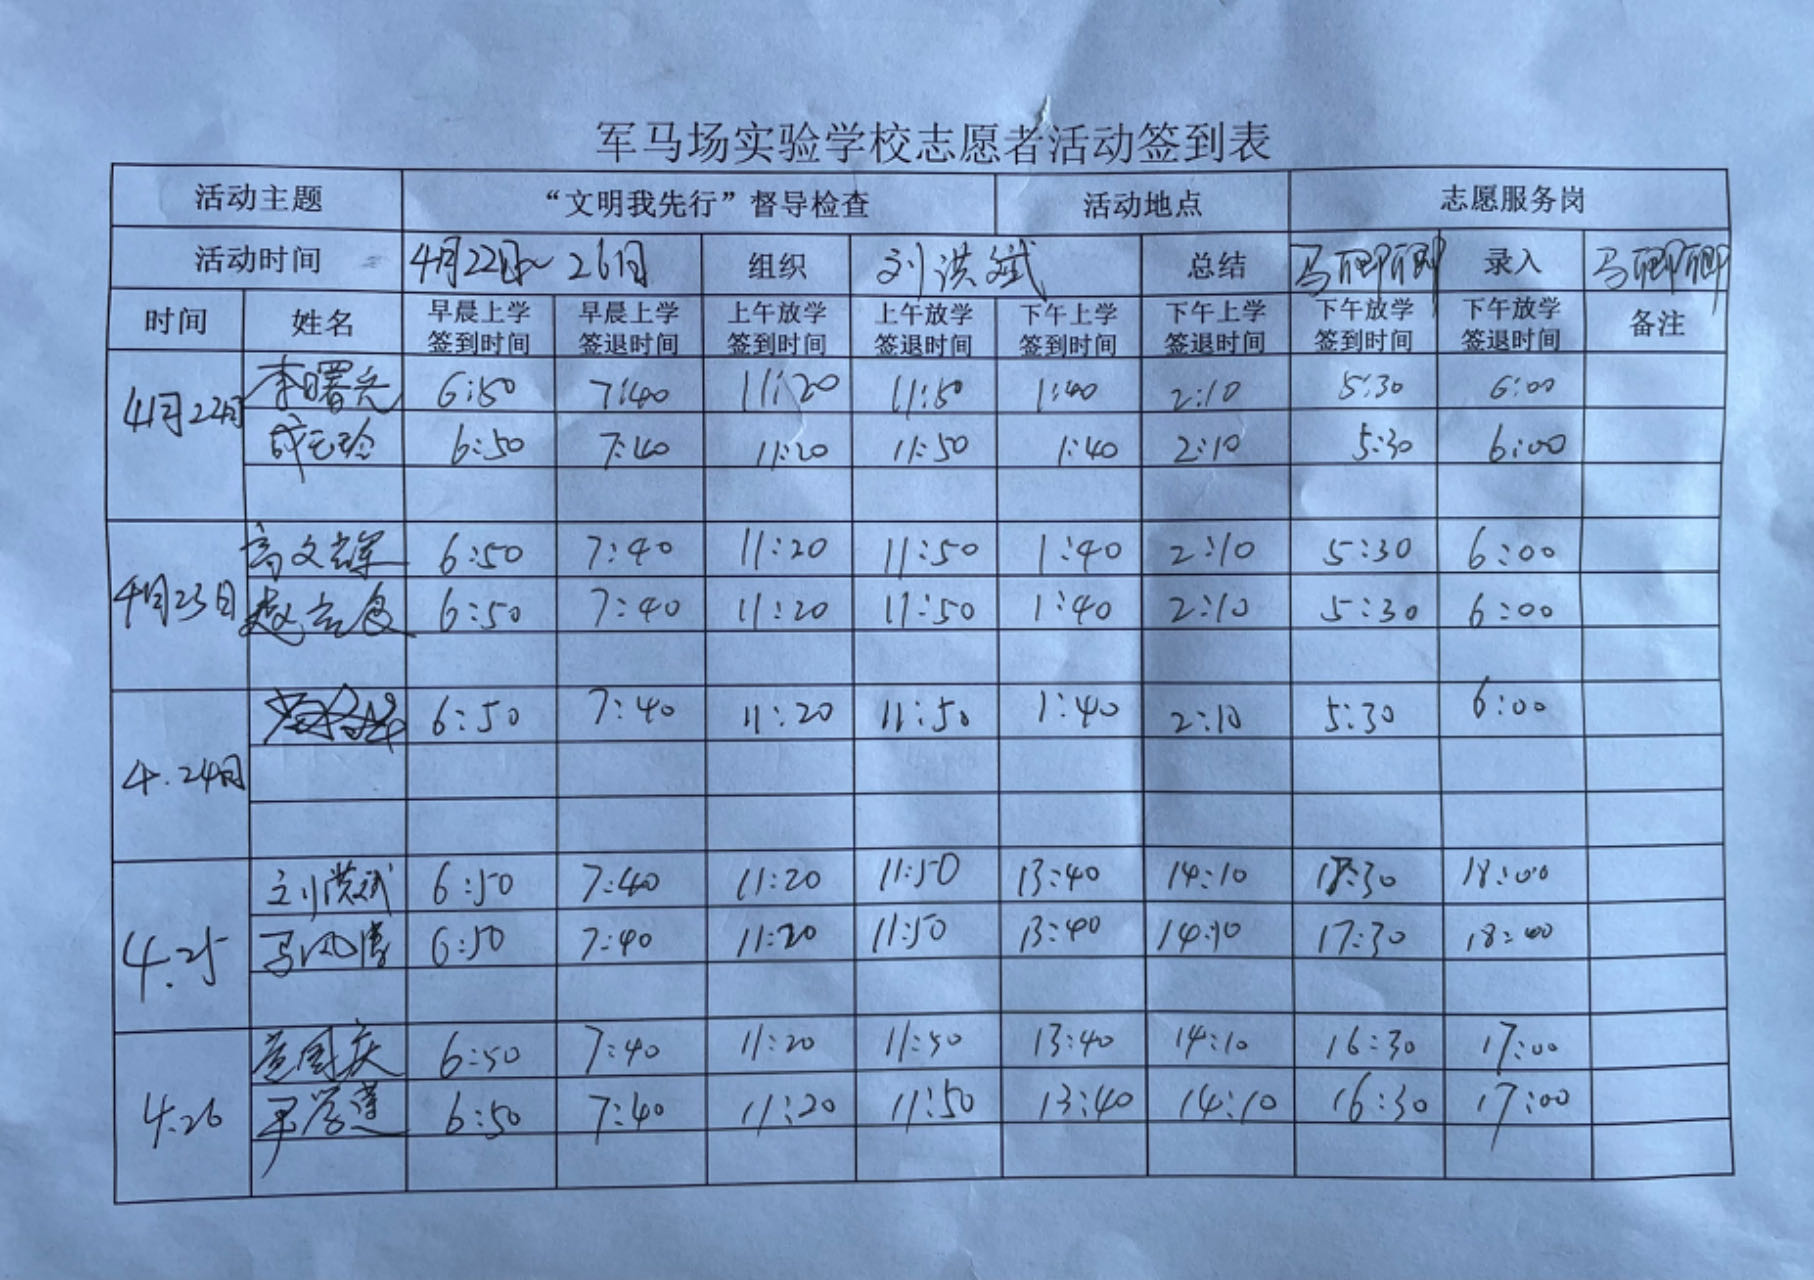 军马场实验学校志愿者活动签到表
活动主题 “文明我先行”督导检查 活动地点 志愿服务岗
活动时间 4月22日~26日 组织 刘洪斌 总结 马卿卿 录入 马卿卿
时间 姓名 早晨上学签到时间 早晨上学签退时间 上午放学签到时间 上午放学签退时间 下午上学签到时间 下午上学签退时间 下午放学签到时间 下午放学签退时间 备注
4月22日 李曙光 6:50 7:40 11:20 11:50 1:40 2:10 5:30 6:00
6:50 7:40 11:20 11:50 1:40 2:10 5:30 6:00
4月23日 高文辉 6:50 7:40 11:20 11:50 1:40 2:10 5:30 6:00
赵 6:50 7:40 11:20 11:50 1:40 2:10 5:30 6:00
4.24日 6:50 7:40 11:20 11:50 1:40 2:10 5:30 6:00
4.25 刘洪斌 6:50 7:40 11:20 11:50 13:40 14:10 17:30 18:00
马风涛 6:50 7:40 11:20 11:50 13:40 14:10 17:30 18:00
4.26 国庆 6:50 7:40 11:20 11:50 13:40 14:10 16:30 17:00
学莲 6:50 7:40 11:20 11:50 13:40 14:10 16:30 17:00